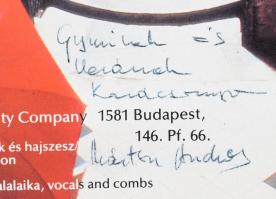 és
Karácsonyra
ty Company 1581 Budapest,
146. Pf. 66.
k és hajszesz/
on
Márton András
alalaika, vocals and combs